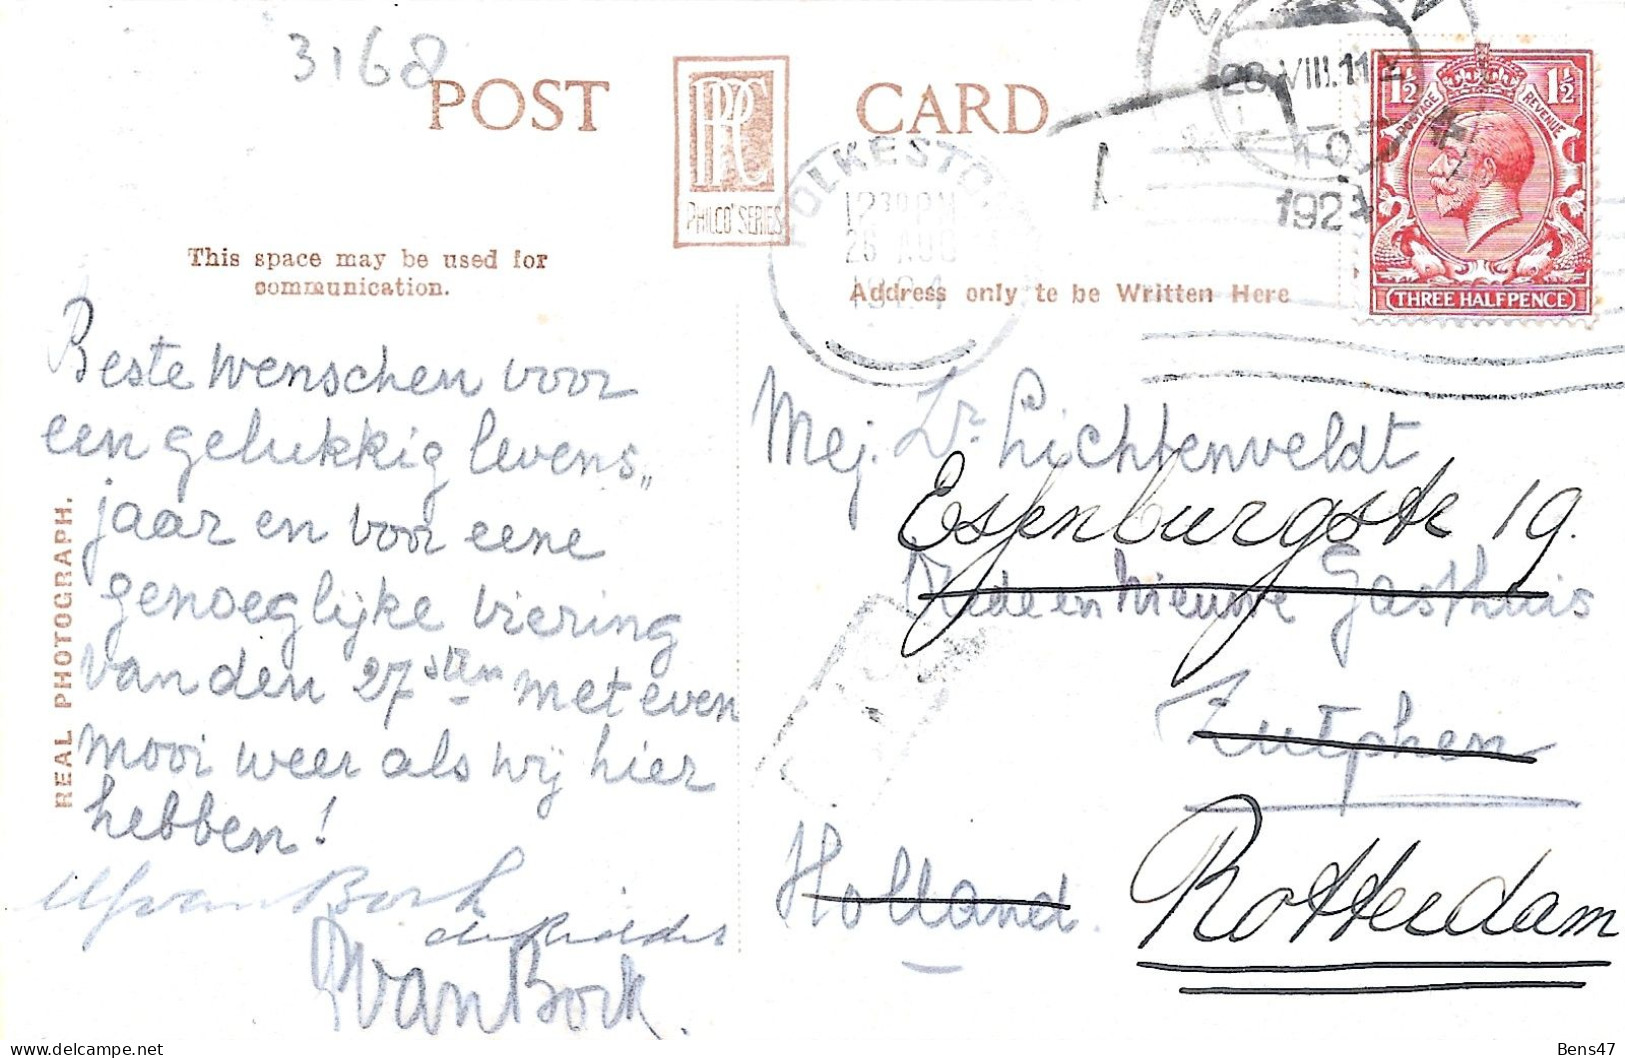 3168
POST CARD
RPPC
PHILCO SERIES
OLKESTO
12 30 PM
26 AUG
1924
28.VIII.11
192
1½ 1½
POSTAGE REVENUE
THREE HALFPENCE
This space may be used for
communication.
Address only to be Written Here
REAL PHOTOGRAPH.
Beste wenschen voor
een gelukkig levens„
jaar en voor eene
genoeglijke viering
van den 27sten met even
mooi weer als wij hier
hebben!
van Bork
de Ridder
van Bork.
Mej. Dr. Lichtenveldt
Essenburgstr 19.
en Nieuwe Gasthuis
Zutphen
Holland.
Rotterdam
Bens47